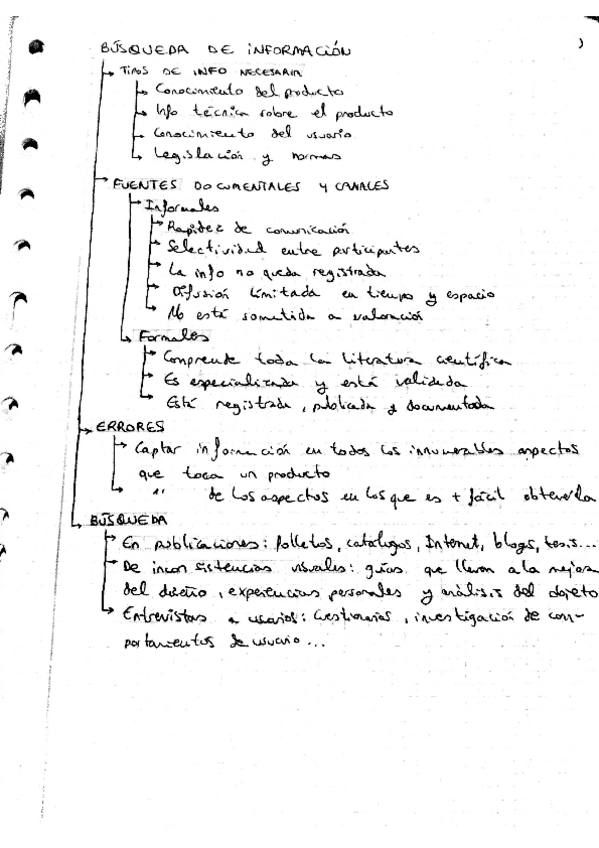 BÚSQUEDA DE INFORMACIÓN
TIPOS DE INFO NECESARIA
Conocimiento del producto
Info técnica sobre el producto
Conocimiento del usuario
Legislación y normas
FUENTES DOCUMENTALES Y CANALES
Informales
Rapidez de comunicación
Selectividad entre participantes
La info no queda registrada
Difusión limitada en tiempo y espacio
No está sometida a valoración
Formales
Comprende toda la literatura científica
Es especializada y está validada
Está registrada, publicada y documentada
ERRORES
Captar información en todos los innumerables aspectos
que toca un producto
" de los aspectos en los que es + fácil obtenerla
BÚSQUEDA
En publicaciones: folletos, catálogos, Internet, blogs, tesis...
De inconsistencias visuales: guías que llevan a la mejora
del diseño, experiencias personales y análisis del objeto
Entrevistas a usuarios: Cuestionarios, investigación de com-
portamientos de usuario...